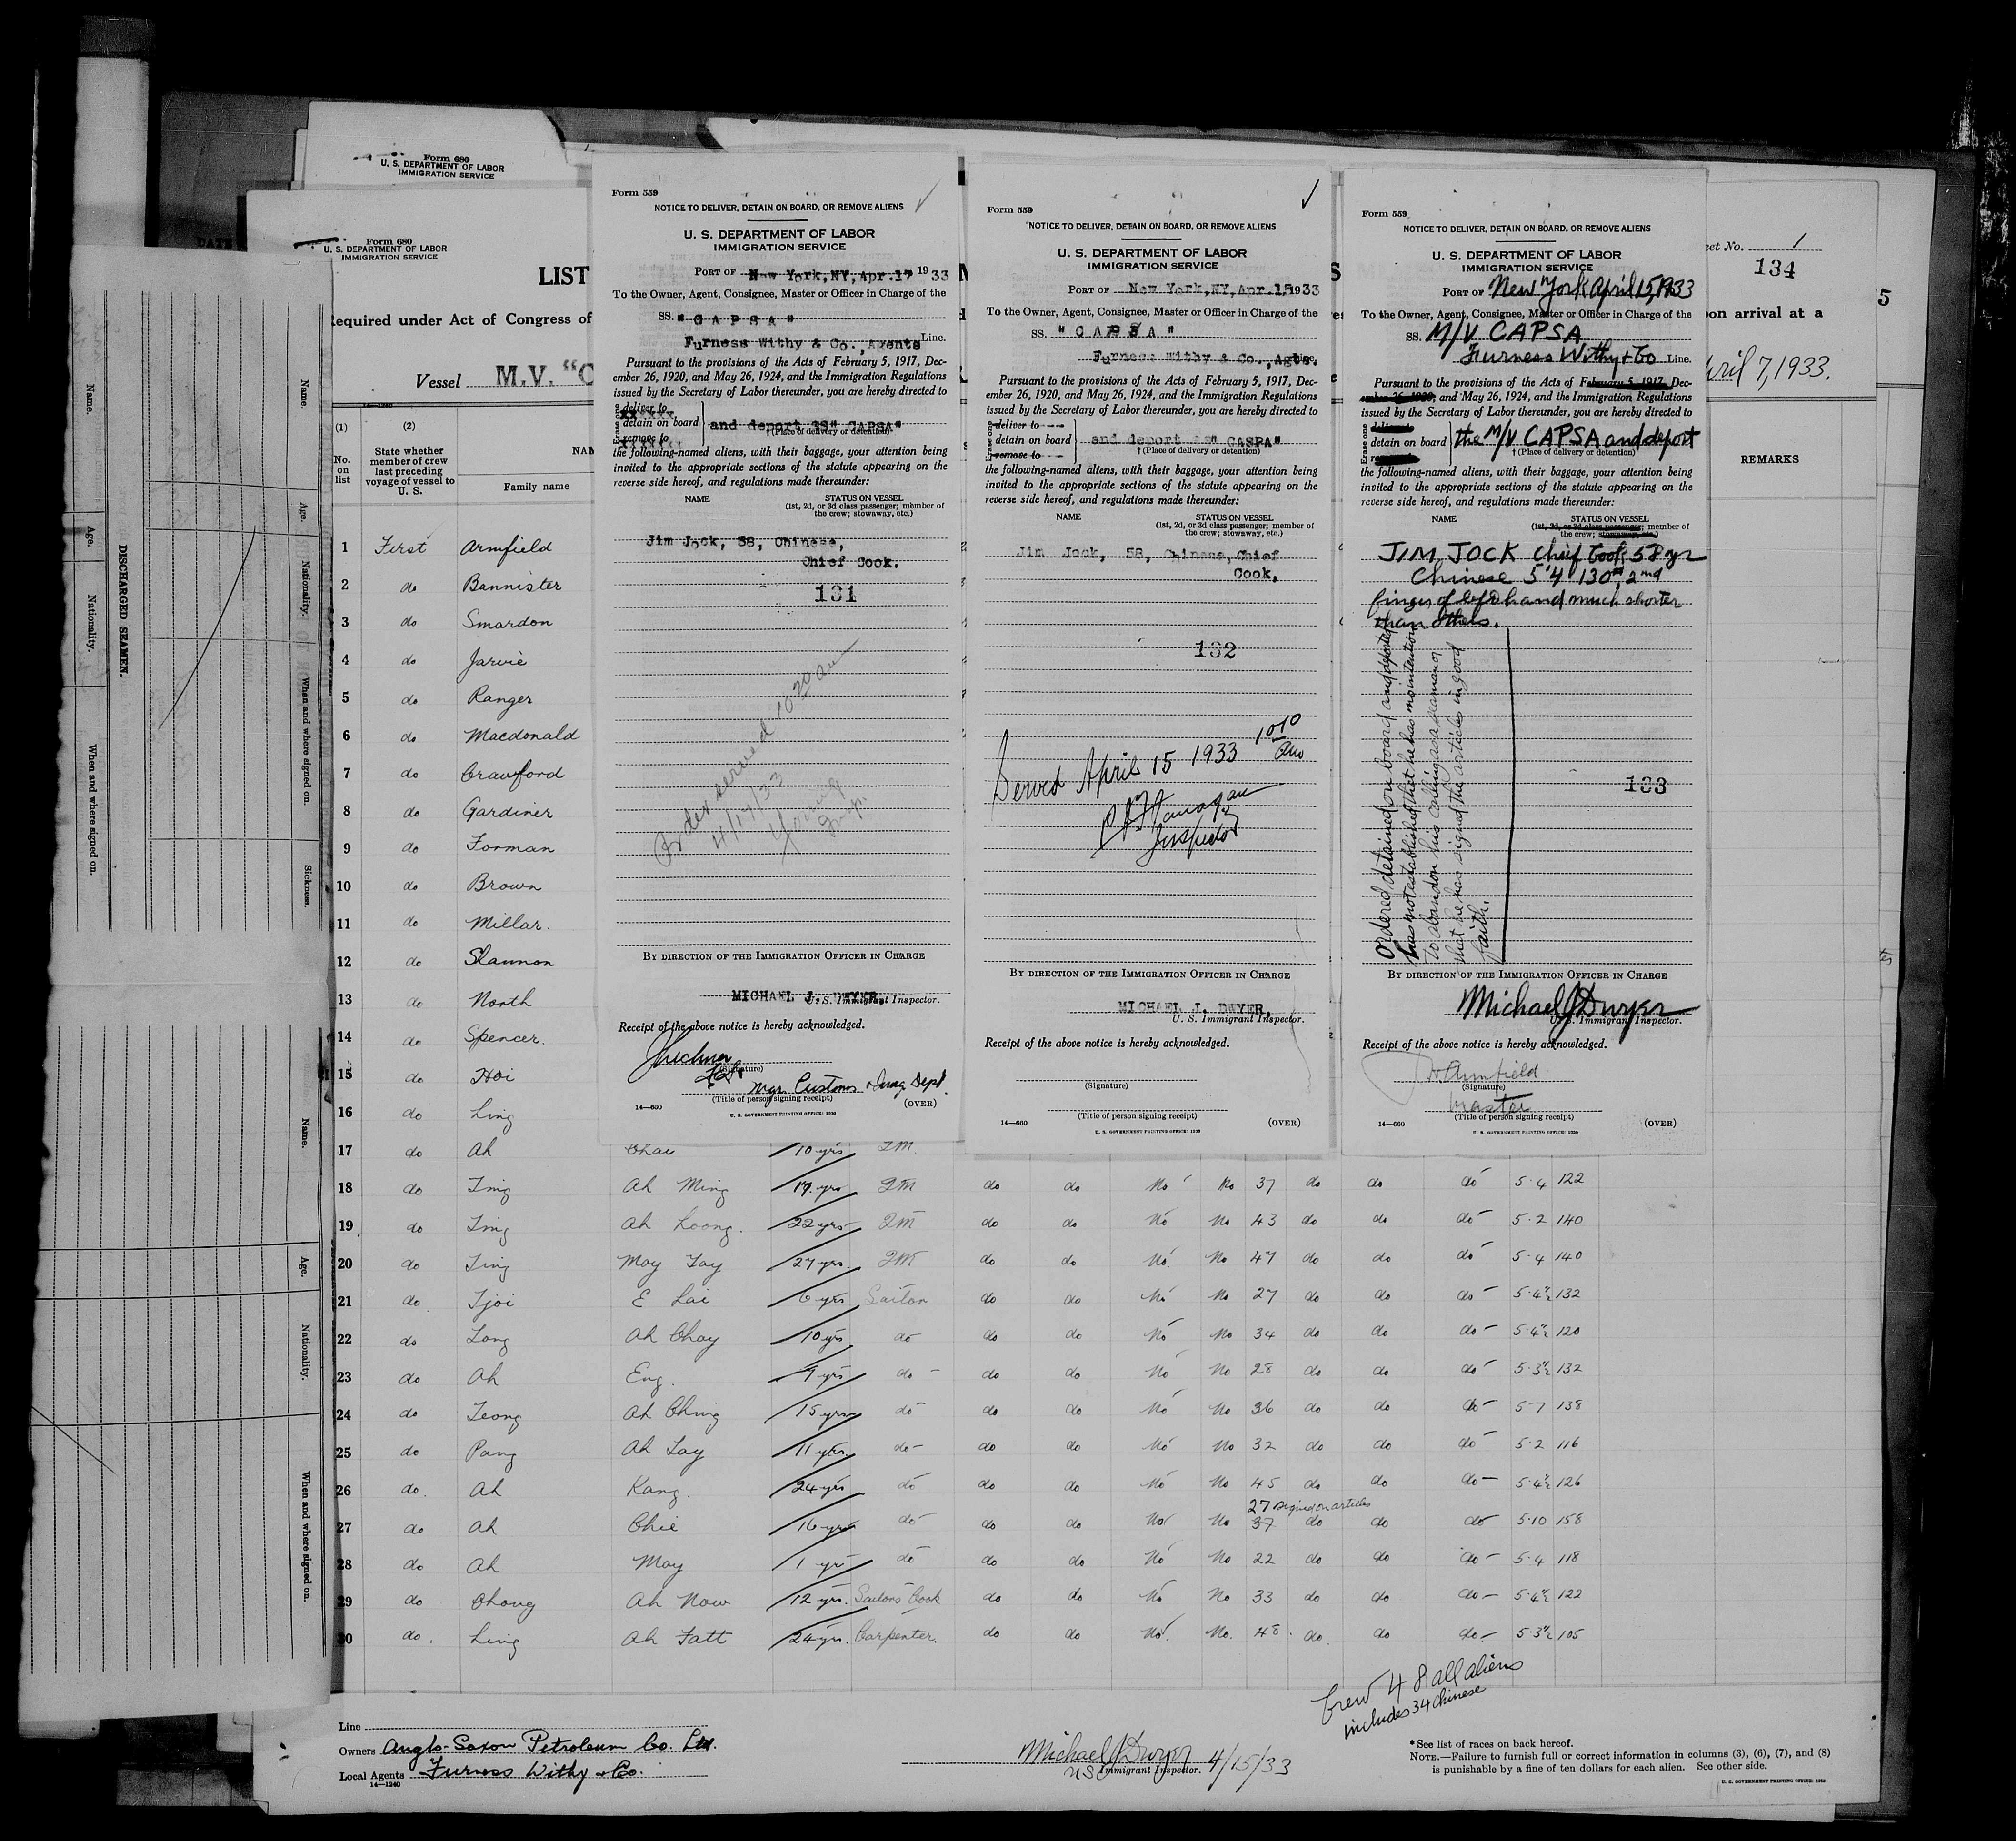 Form 680
U. S. DEPARTMENT OF LABOR
IMMIGRATION SERVICE
Form 680
U. S. DEPARTMENT OF LABOR
IMMIGRATION SERVICE
LIST
Required under Act of Congress of
Vessel M.V. "C
14—1240
(1) (2)
No. on list
State whether member of crew last preceding voyage of vessel to U. S.
NAM
Family name
1 First Armfield
2 do Bannister
3 do Smardon
4 do Jarvie
5 do Ranger
6 do Macdonald
7 do Crawford
8 do Gardiner
9 do Forman
10 do Brown
11 do Millar.
12 do Shannon
13 do North
14 do Spencer.
15 do Hoi
16 do Ling
17 do Ah Chai 10 yrs 2M.
18 do Ting Ah Ming 19 yrs 2M do do No No 37 do do do 5·4 122
19 do Ting Ah Loong. 22 yrs 2M do do No No 43 do do do 5·2 140
20 do Ting May Tay 27 yrs. 2M do do No. No 47 do do do 5·4 140
21 do. Tjoi E Lai 6 yrs Sailor do do No No 27 do do do 5·4½ 132
22 do Tong Ah Chay 10 yrs do do do No No 34 do do do 5·4½ 120
23 do Ah Eng. 9 yrs do do do No No 28 do do do 5·3½ 132
24 do Teong Ah Ching 15 yrs do do do No No 36 do do do 5·7 138
25 do Pang Ah Tay 11 yrs do do do No No 32 do do do 5·2 116
26 do. Ah Kang. 24 yrs do do do No No 45 do do do 5·4½ 126
27 signed on articles
27 do Ah Chie 16 yrs do do do No No 37 do do do 5·10 158
28 do Ah May 1 yr do do do No No 22 do do do 5·4 118
29 do Chong Ah Now 12 yrs. Sailors Cook do do No No 33 do do do 5·4½ 122
30 do. Ling Ah Fatt 24 yrs. Carpenter. do do No. No. 48. do. do do 5·3½ 105
Crew 48 all aliens
includes 34 Chinese
Line
Owners Anglo-Saxon Petroleum Co. Ltd.
Local Agents Furness Withy & Co.
14—1240
Michael J Dwyer 4/15/33
US Immigrant Inspector.
*See list of races on back hereof.
NOTE.—Failure to furnish full or correct information in columns (3), (6), (7), and (8)
is punishable by a fine of ten dollars for each alien. See other side.
U. S. GOVERNMENT PRINTING OFFICE:
Form 559
NOTICE TO DELIVER, DETAIN ON BOARD, OR REMOVE ALIENS
U. S. DEPARTMENT OF LABOR
IMMIGRATION SERVICE
PORT OF New York,NY,Apr.17 1933
To the Owner, Agent, Consignee, Master or Officer in Charge of the
SS. "CAPSA"
Furness Withy & Co., Agents Line.
Pursuant to the provisions of the Acts of February 5, 1917, Dec-
ember 26, 1920, and May 26, 1924, and the Immigration Regulations
issued by the Secretary of Labor thereunder, you are hereby directed to
Erase one
deliver to
detain on board and deport SS" CAPSA"
remove to
† (Place of delivery or detention)
the following-named aliens, with their baggage, your attention being
invited to the appropriate sections of the statute appearing on the
reverse side hereof, and regulations made thereunder:
NAME STATUS ON VESSEL
(1st, 2d, or 3d class passenger; member of
the crew; stowaway, etc.)
Jim Jock, 58, Chinese,
Chief Cook.
131
Order served 10 20 am
4/17/33
Young
Insp.
BY DIRECTION OF THE IMMIGRATION OFFICER IN CHARGE
MICHAEL J. DWYER,
U. S. Immigrant Inspector.
Receipt of the above notice is hereby acknowledged.
(Signature)
Mgr. Customs & Immg Dept
(Title of person signing receipt)
14—660 U. S. GOVERNMENT PRINTING OFFICE: 1930 (OVER)
Form 559
NOTICE TO DELIVER, DETAIN ON BOARD, OR REMOVE ALIENS
U. S. DEPARTMENT OF LABOR
IMMIGRATION SERVICE
PORT OF New York,NY,Apr.15 1933
To the Owner, Agent, Consignee, Master or Officer in Charge of the
SS. "CAPSA"
Furness Withy & Co., Agts.
Pursuant to the provisions of the Acts of February 5, 1917, Dec-
ember 26, 1920, and May 26, 1924, and the Immigration Regulations
issued by the Secretary of Labor thereunder, you are hereby directed to
Erase one
deliver to
detain on board and deport SS" CASPA"
remove to
† (Place of delivery or detention)
the following-named aliens, with their baggage, your attention being
invited to the appropriate sections of the statute appearing on the
reverse side hereof, and regulations made thereunder:
NAME STATUS ON VESSEL
(1st, 2d, or 3d class passenger; member of
the crew; stowaway, etc.)
Jim Jock, 58, Chinese, Chief
Cook,
132
Served April 15 1933 10 10 am
Inspector
BY DIRECTION OF THE IMMIGRATION OFFICER IN CHARGE
MICHAEL J. DWYER,
U. S. Immigrant Inspector.
Receipt of the above notice is hereby acknowledged.
(Signature)
(Title of person signing receipt)
14—660 U. S. GOVERNMENT PRINTING OFFICE: 1930 (OVER)
Form 559
NOTICE TO DELIVER, DETAIN ON BOARD, OR REMOVE ALIENS
U. S. DEPARTMENT OF LABOR
IMMIGRATION SERVICE
PORT OF New York April 15, 1933
To the Owner, Agent, Consignee, Master or Officer in Charge of the
SS. M/V CAPSA
Furness Withy & Co Line.
Pursuant to the provisions of the Acts of February 5, 1917, Dec-
ember 26, 1920, and May 26, 1924, and the Immigration Regulations
issued by the Secretary of Labor thereunder, you are hereby directed to
Erase one
detain on board the M/V CAPSA and deport
† (Place of delivery or detention)
the following-named aliens, with their baggage, your attention being
invited to the appropriate sections of the statute appearing on the
reverse side hereof, and regulations made thereunder:
NAME STATUS ON VESSEL
(1st, 2d, or 3d class passenger; member of
the crew; stowaway, etc.)
JIM JOCK Chief Cook 58 yr
Chinese 5'4 130# 2nd
finger of left hand much shorter
than others.
Ordered detained on board and deported
has not established that he has no intention
to abandon his calling as a seaman or
that he has signed the articles in good
faith.
133
BY DIRECTION OF THE IMMIGRATION OFFICER IN CHARGE
Michael J Dwyer
U. S. Immigrant Inspector.
Receipt of the above notice is hereby acknowledged.
H Armfield
(Signature)
Master
(Title of person signing receipt)
14—660 U. S. GOVERNMENT PRINTING OFFICE: 1930 (OVER)
eet No. 1
134
5
on arrival at a
April 7, 1933.
REMARKS
DISCHARGED SEAMEN.
Name.
Age.
Nationality.
When and where signed on.
Name.
Age.
Nationality.
When and where signed on.
Sickness.
Name.
Age.
Nationality.
When and where signed on.